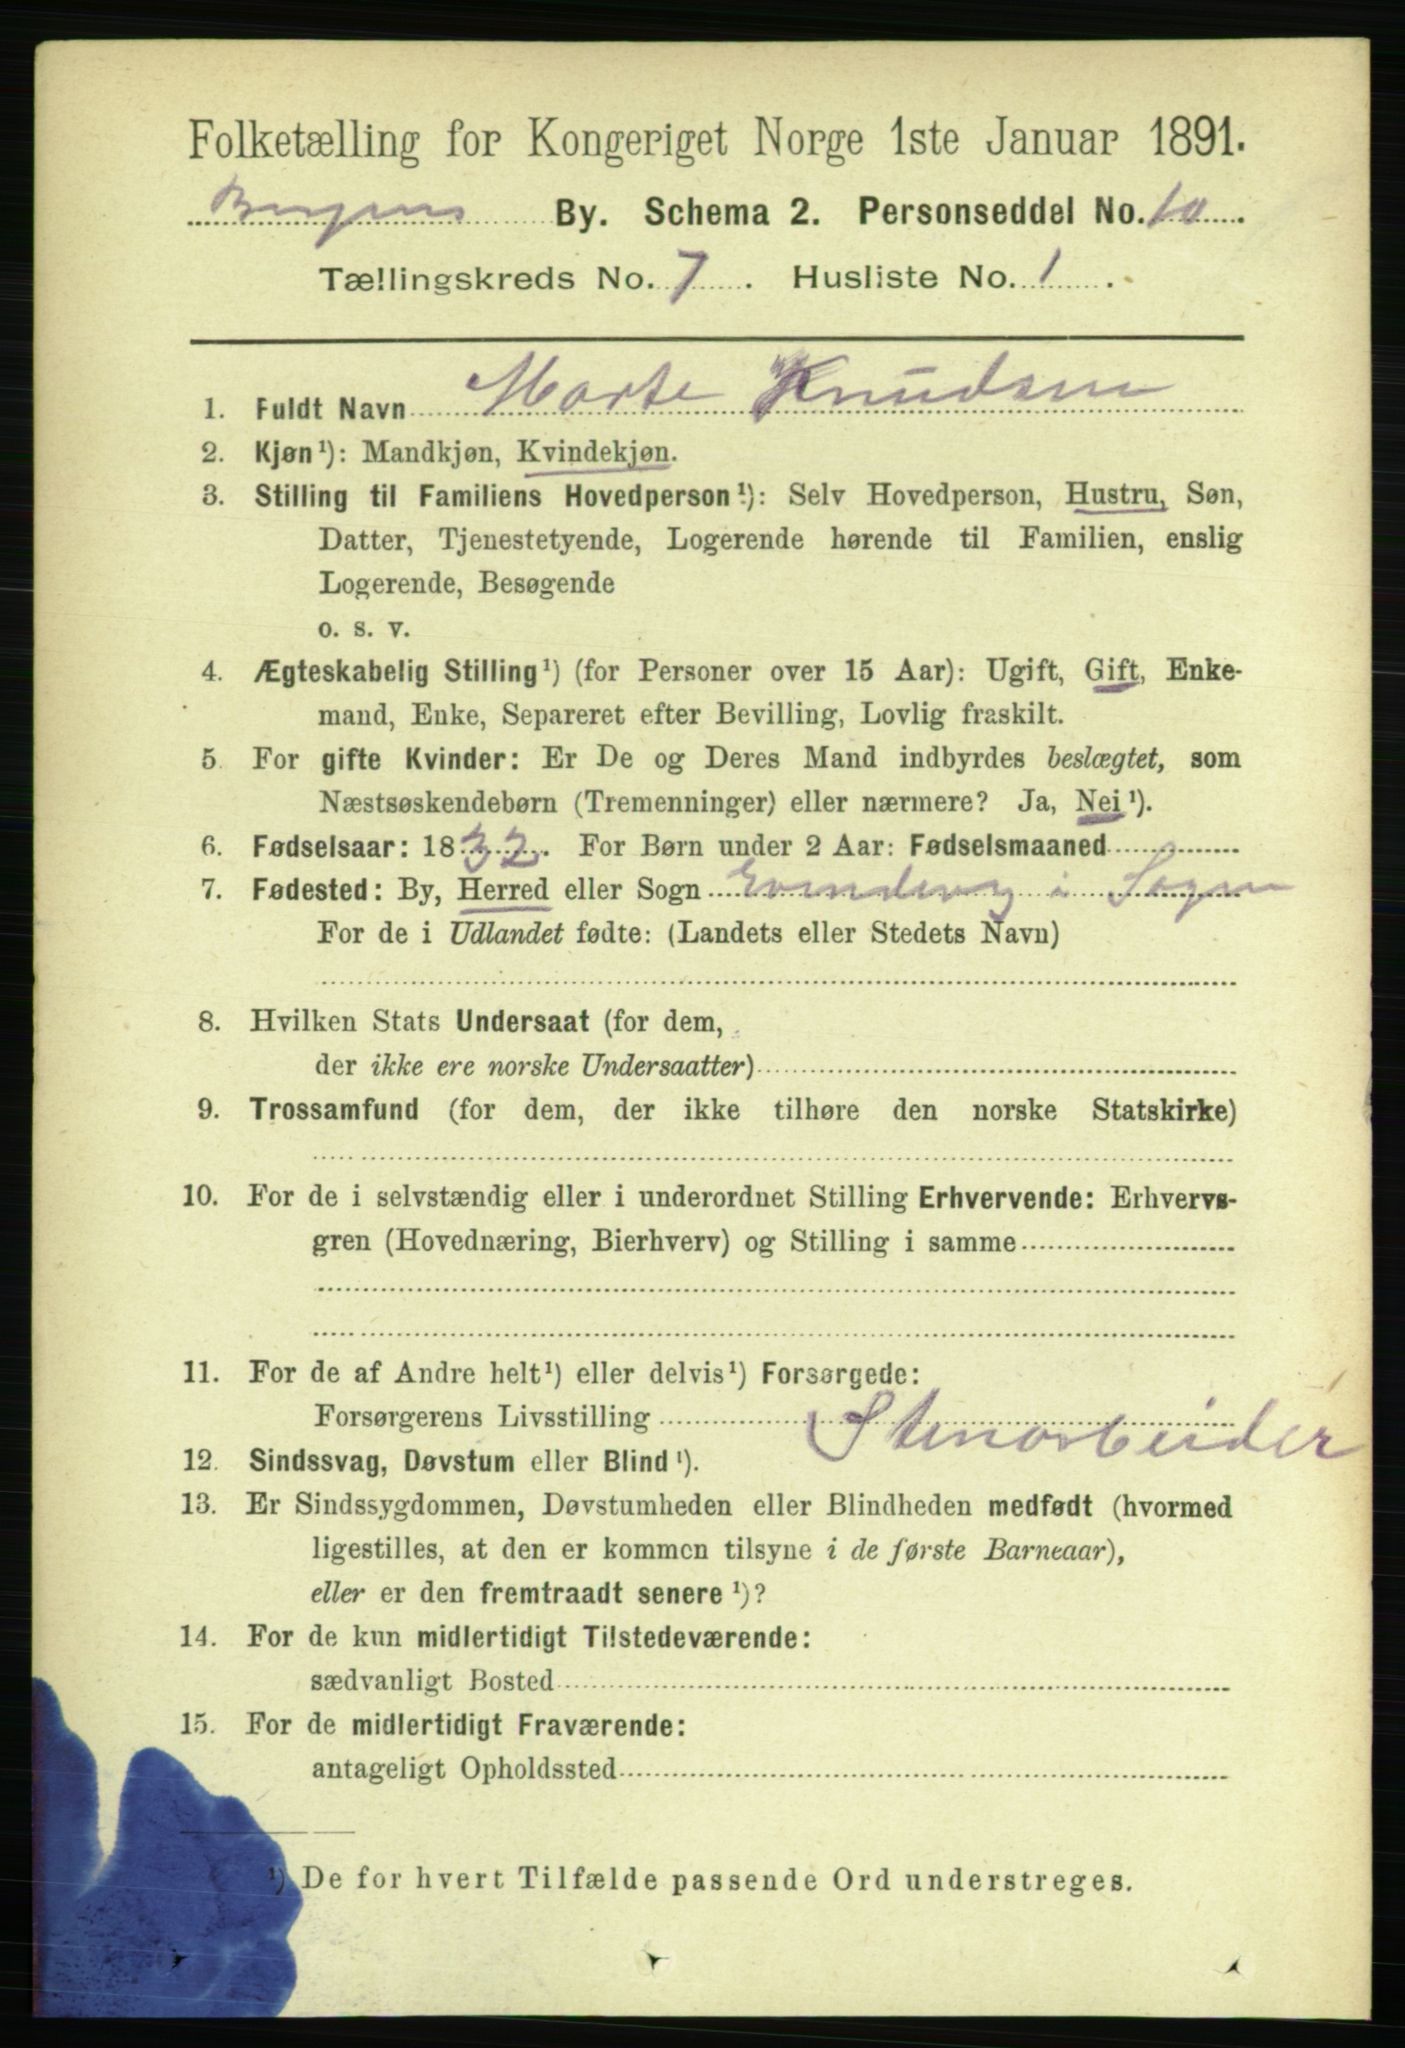 Folketælling for Kongeriget Norge 1ste Januar 1891.
Bergens By. Schema 2. Personseddel No. 10.
Tællingskreds No. 7. Husliste No. 1.
1. Fuldt Navn Marte Knudsen
2. Kjøn¹): Mandkjøn, Kvindekjøn.
3. Stilling til Familiens Hovedperson¹): Selv Hovedperson, Hustru, Søn,
Datter, Tjenestetyende, Logerende hørende til Familien, enslig
Logerende, Besøgende
o. s. v.
4. Ægteskabelig Stilling¹) (for Personer over 15 Aar): Ugift, Gift, Enke-
mand, Enke, Separeret efter Bevilling, Lovlig fraskilt.
5. For gifte Kvinder: Er De og Deres Mand indbyrdes beslægtet, som
Næstsøskendebørn (Tremenninger) eller nærmere? Ja, Nei¹).
6. Fødselsaar: 1832. For Børn under 2 Aar: Fødselsmaaned
7. Fødested: By, Herred eller Sogn Evindevig i Sogn
For de i Udlandet fødte: (Landets eller Stedets Navn)
8. Hvilken Stats Undersaat (for dem,
der ikke ere norske Undersaatter)
9. Trossamfund (for dem, der ikke tilhøre den norske Statskirke)
10. For de i selvstændig eller i underordnet Stilling Erhvervende: Erhvervs-
gren (Hovednæring, Bierhverv) og Stilling i samme
11. For de af Andre helt¹) eller delvis¹) Forsørgede:
Forsørgerens Livsstilling Stenarbeider
12. Sindssvag, Døvstum eller Blind¹).
13. Er Sindssygdommen, Døvstumheden eller Blindheden medfødt (hvormed
ligestilles, at den er kommen tilsyne i de første Barneaar),
eller er den fremtraadt senere¹)?
14. For de kun midlertidigt Tilstedeværende:
sædvanligt Bosted
15. For de midlertidigt Fraværende:
antageligt Opholdssted
¹) De for hvert Tilfælde passende Ord understreges.